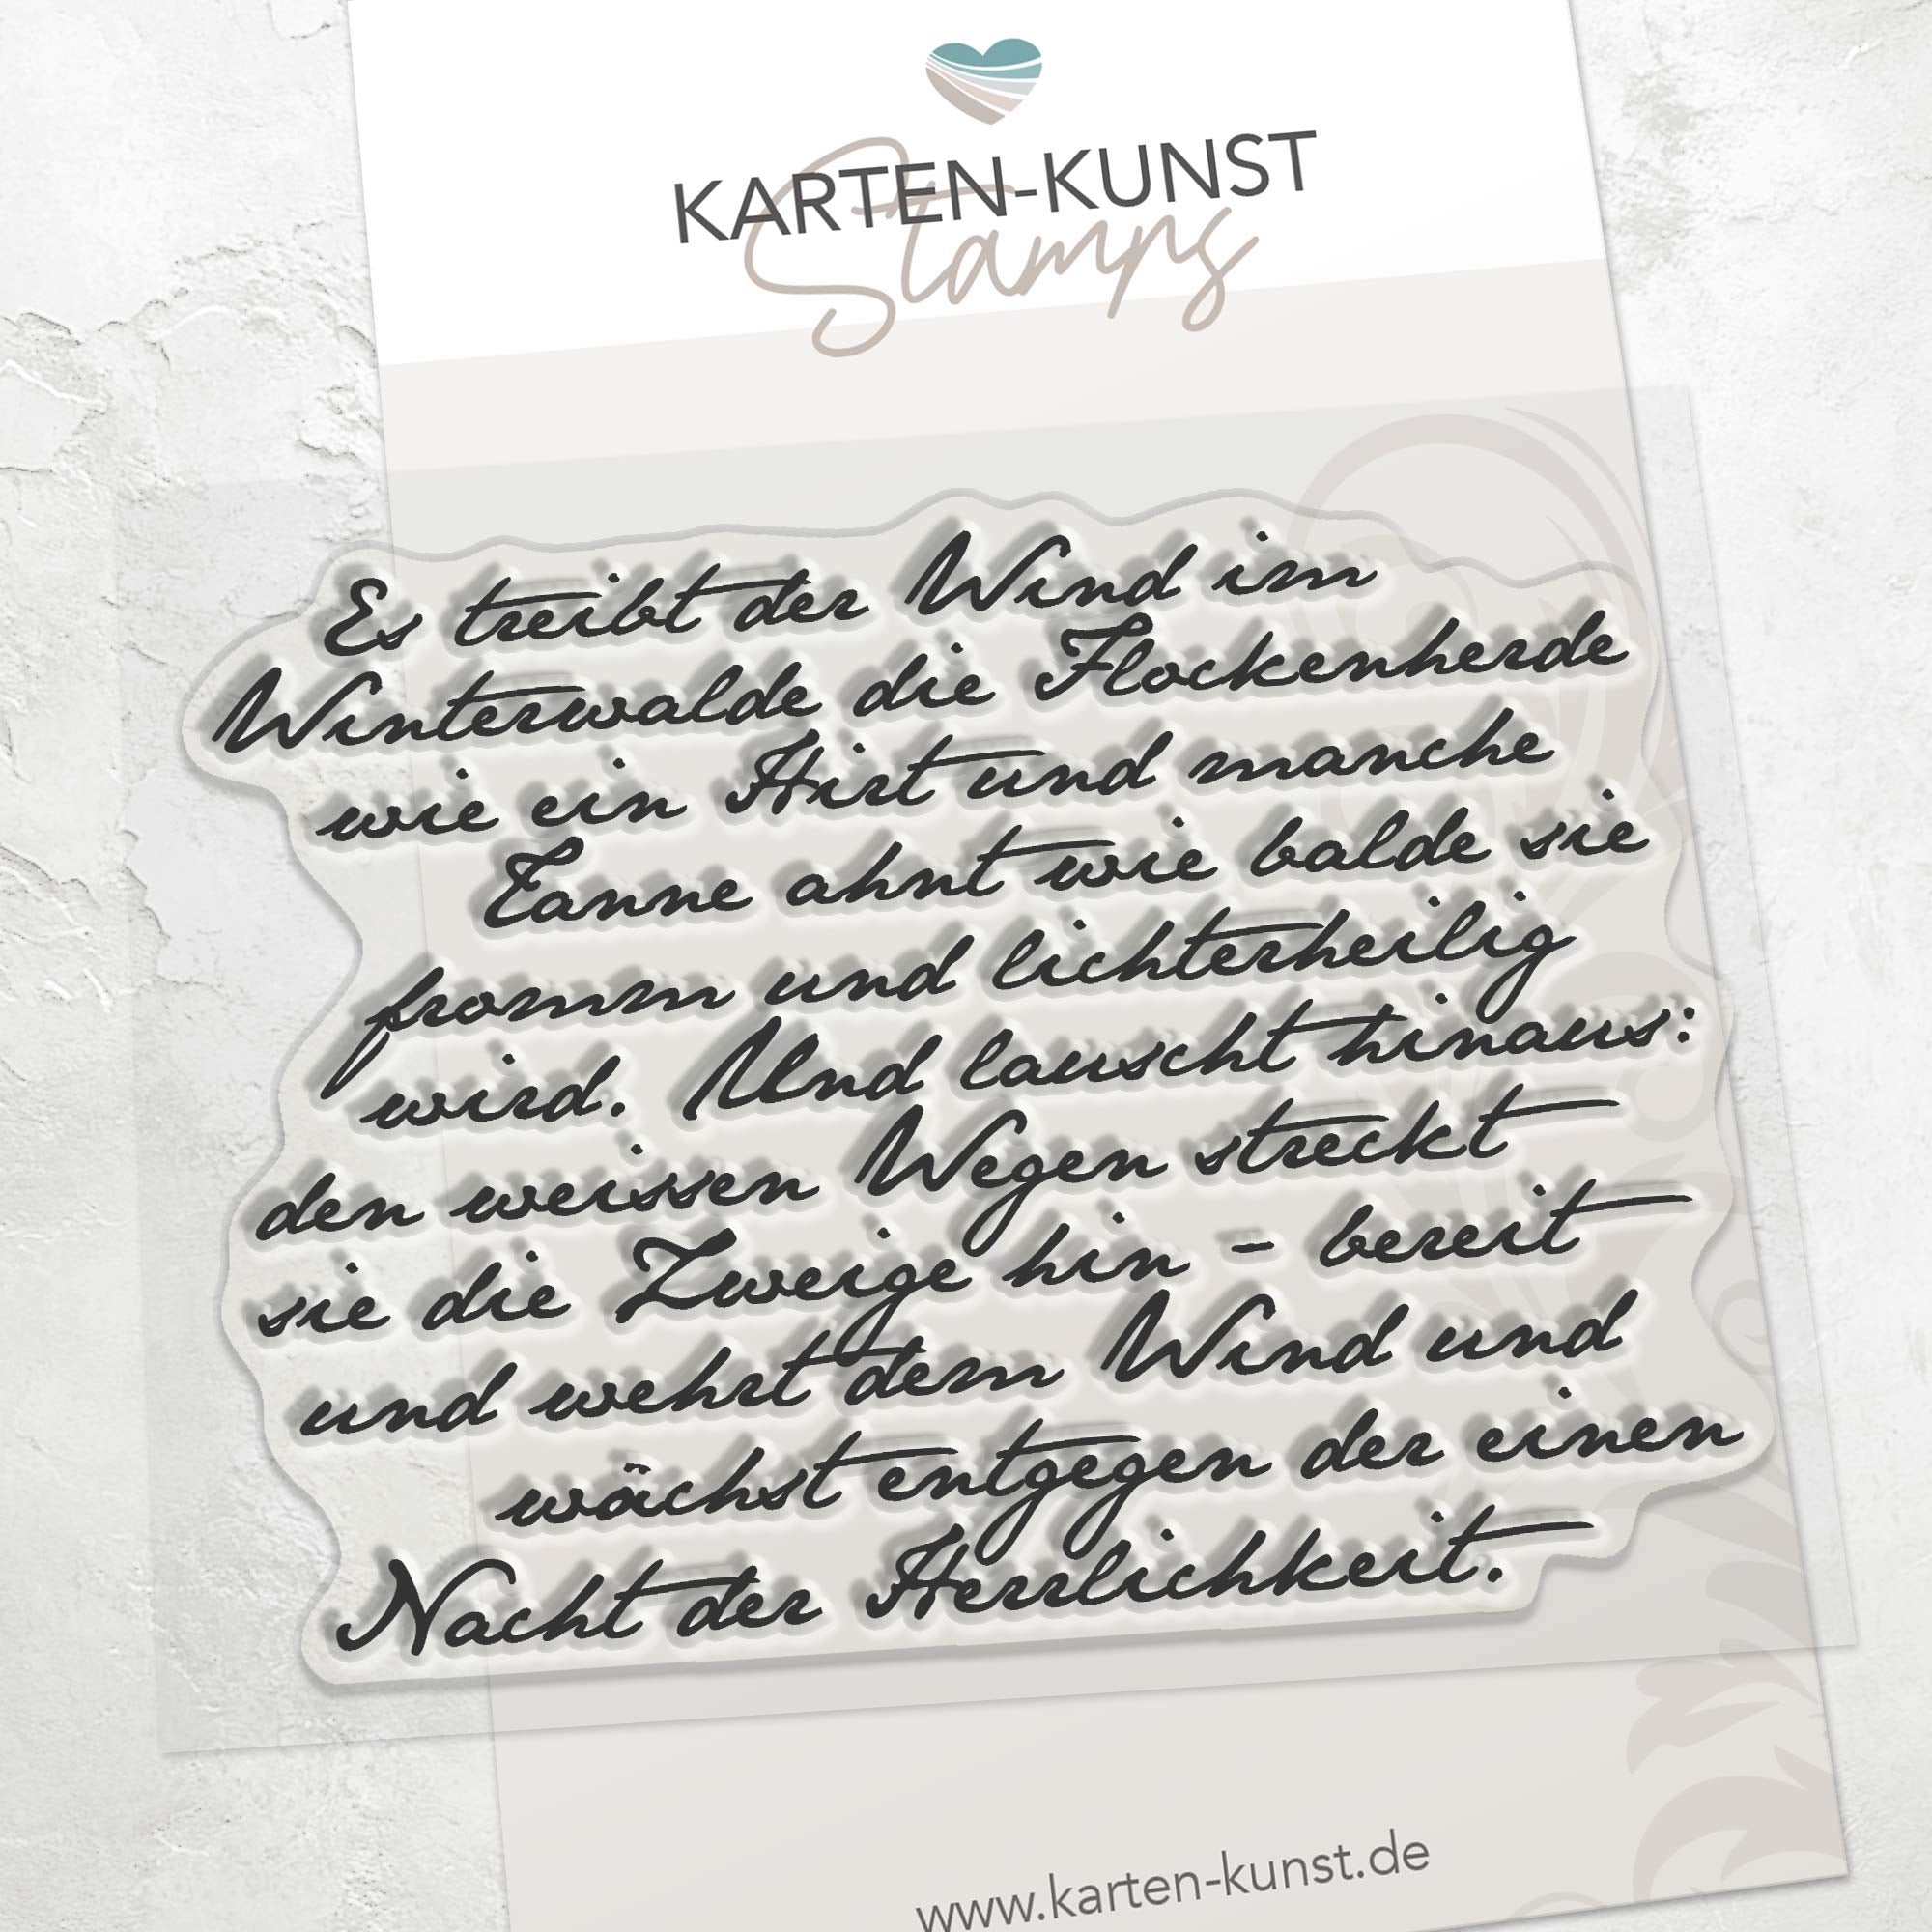 KARTEN-KUNST
Stamps
Es treibt der Wind im
Winterwalde die Flockenherde
wie ein Hirt und manche
Tanne ahnt wie balde sie
fromm und lichterheilig
wird. Und lauscht hinaus:
den weissen Wegen streckt
sie die Zweige hin – bereit
und wehrt dem Wind und
wächst entgegen der einen
Nacht der Herrlichkeit.
www.karten-kunst.de